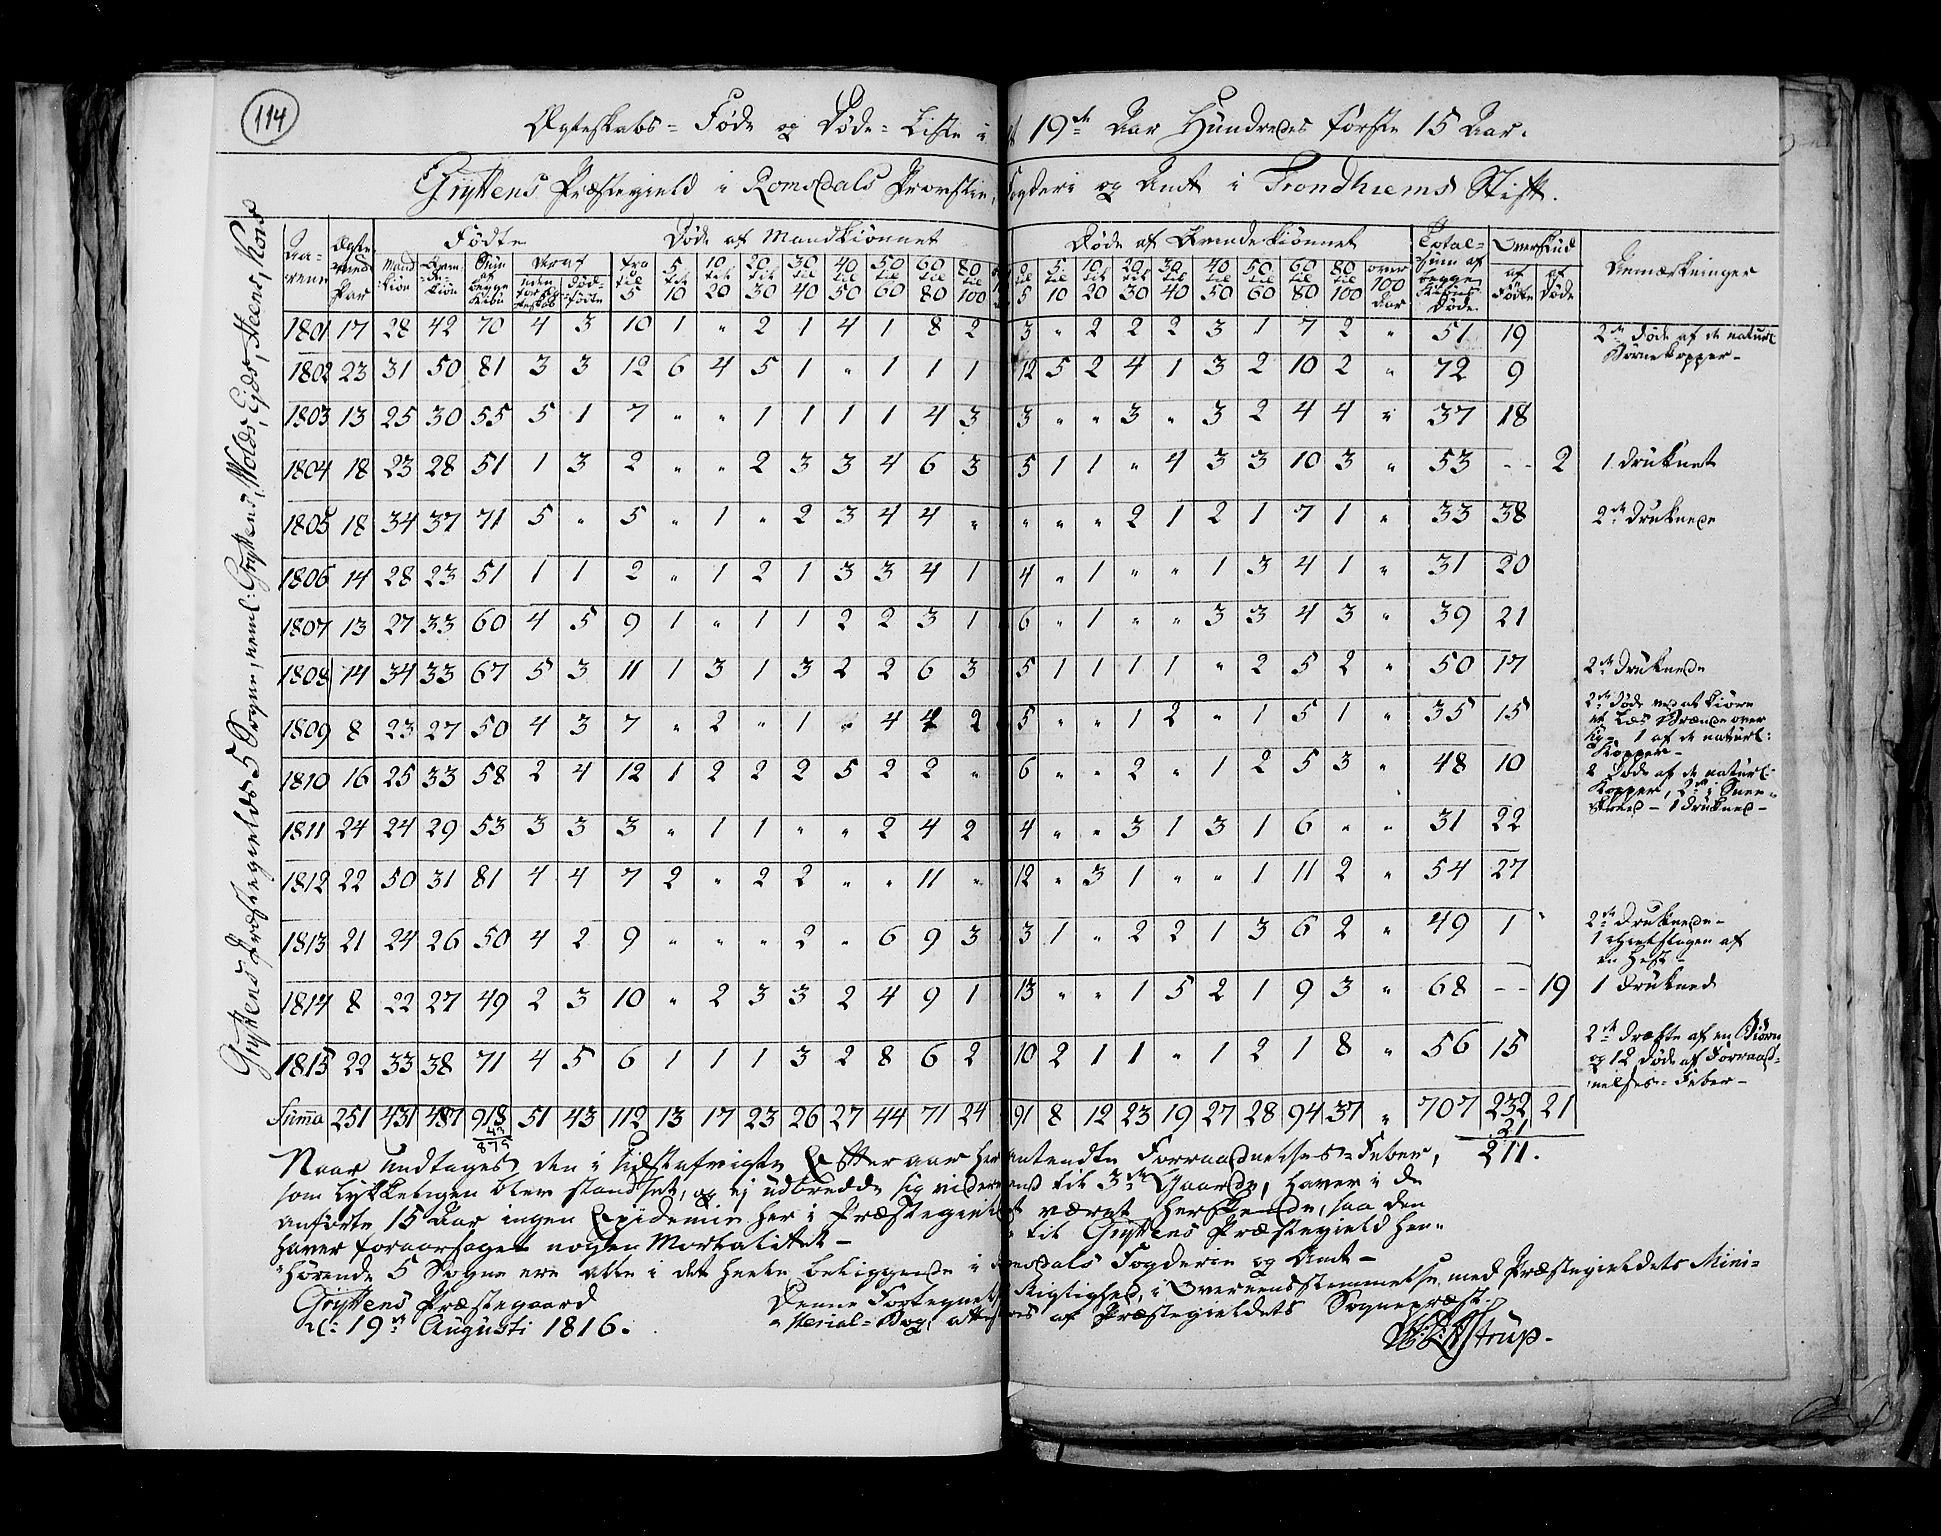 114
Ægteskabs- Føde og Døde- Liste i det 19de Aar Hundredes første 15 Aar.
Gryttens Præstegield i Romsdals Provstie, Fogderi og Amt i Trondhiems Stift.
Gryttens Præstegields 5 Sogne, neml: Gryttens, Wolds, Eids, Heens, Kors
Aa-rene | Ægte-viede Par | Fødte | Døde af Mandkiønnet | Døde af Qvindekiønnet | Total-Sum af begge Kiøns Døde | Overskud | Anmærkninger
Mand Kiøn | Qvin-de-kiøn | Sum af begge Kiøn | Deraf uden for Ægteskab | Død-fødte | fra til 5 | 5 til 10 | 10 til 20 | 20 til 30 | 30 til 40 | 40 til 50 | 50 til 60 | 60 til 80 | 80 til 100 | 5 | 5 til 10 | 10 til 20 | 20 til 30 | 30 til 40 | 40 til 50 | 50 til 60 | 60 til 80 | 80 til 100 | over 100 Aar | af Fødte | af Døde
1801 17 28 42 70 4 3 10 1 " 2 1 4 1 8 2 3 " 2 2 2 3 1 7 2 " 51 19 2de døde af de naturl Børnekopper-
1802 23 31 50 81 3 3 12 6 4 5 1 " 1 1 1 12 5 2 4 1 3 2 10 2 " 72 9
1803 13 25 30 55 5 1 7 " " 1 1 1 1 4 3 3 " " 3 " 3 2 4 4 " 37 18
1804 18 23 28 51 1 3 2 " " 2 3 3 4 6 3 5 1 1 " 4 3 3 10 3 " 53 -- 2 1 druknet
1805 18 34 37 71 5 " 5 " 1 " 2 3 4 4 " " " " 2 1 2 1 7 1 " 33 38 2de druknede
1806 14 28 23 51 1 1 2 " 1 2 1 3 3 4 1 4 " 1 " " 1 3 4 1 " 31 20
1807 13 27 33 60 4 5 9 1 " 1 1 2 2 3 1 6 " 1 " " 3 3 4 3 " 39 21
1808 14 34 33 67 5 3 11 1 3 1 3 2 2 6 3 5 1 1 1 1 " 2 5 2 " 50 17 2de druknede
1809 8 23 27 50 4 3 7 " 2 " 1 " 4 4 2 5 " " 1 2 " 1 5 1 " 35 15 2de døde ved at kiøre et Læs Brænde over sig- 1 af de naturl: Kopper-
1810 16 25 33 58 2 4 12 1 2 2 2 5 2 2 " 6 " " 2 " 1 2 5 3 " 48 10 2 døde af de naturl: Kopper, 2de i Snee-skred- 1 druknet-
1811 24 24 29 53 3 3 3 " 1 1 " " 2 4 2 4 " " 3 1 3 1 6 " " 31 22
1812 22 50 31 81 4 4 7 2 " 2 2 " " 11 " 12 " 3 1 " " 1 11 2 " 54 27
1813 21 24 26 50 4 2 9 " " " 2 " 6 9 3 3 1 " 2 2 1 3 6 2 " 49 1 " 2de druknede- 1 ihielslagen af en Hest-
1814 8 22 27 49 2 3 10 " 2 3 3 2 4 9 1 13 " " 1 5 2 1 9 3 " 68 -- 19 1 drukned
1815 22 33 38 71 4 5 6 1 1 1 3 2 8 6 2 10 2 1 1 " 1 2 1 8 " 56 15 2de dræbte af en Biørn og 12 døde af Forraad-nelses-Feber-
Summa 251 431 487 918 51 43 112 13 17 23 26 27 44 71 24 91 8 12 23 19 27 28 94 37 " 707 232 21
43
875
21
211.
Naar undtages den i sidstafvigte Efteraar her antendte Forraadnelses-Feber,
som lykkeligen blev standset, og ej udbredde sig videre end til 3de Gaarde, haver i de
anførte 15 Aar ingen Epidemie her i Præstegieldet været herskende, saa den
haver foraarsaget nogen Mortalitet- til Gryttens Præstegield hen-
hørende 5 Sogne ere alle i det heele beliggende i Romsdals Fogderie og Amt-
Gryttens Præstegaard
d: 19de Augusti 1816.
Denne Fortegnelses Rigtighed, i Overeensstemmelse med Præstegieldets Mini-
sterial-Bog, attesteres af Præstegieldets Sognepræst.
Astrup.